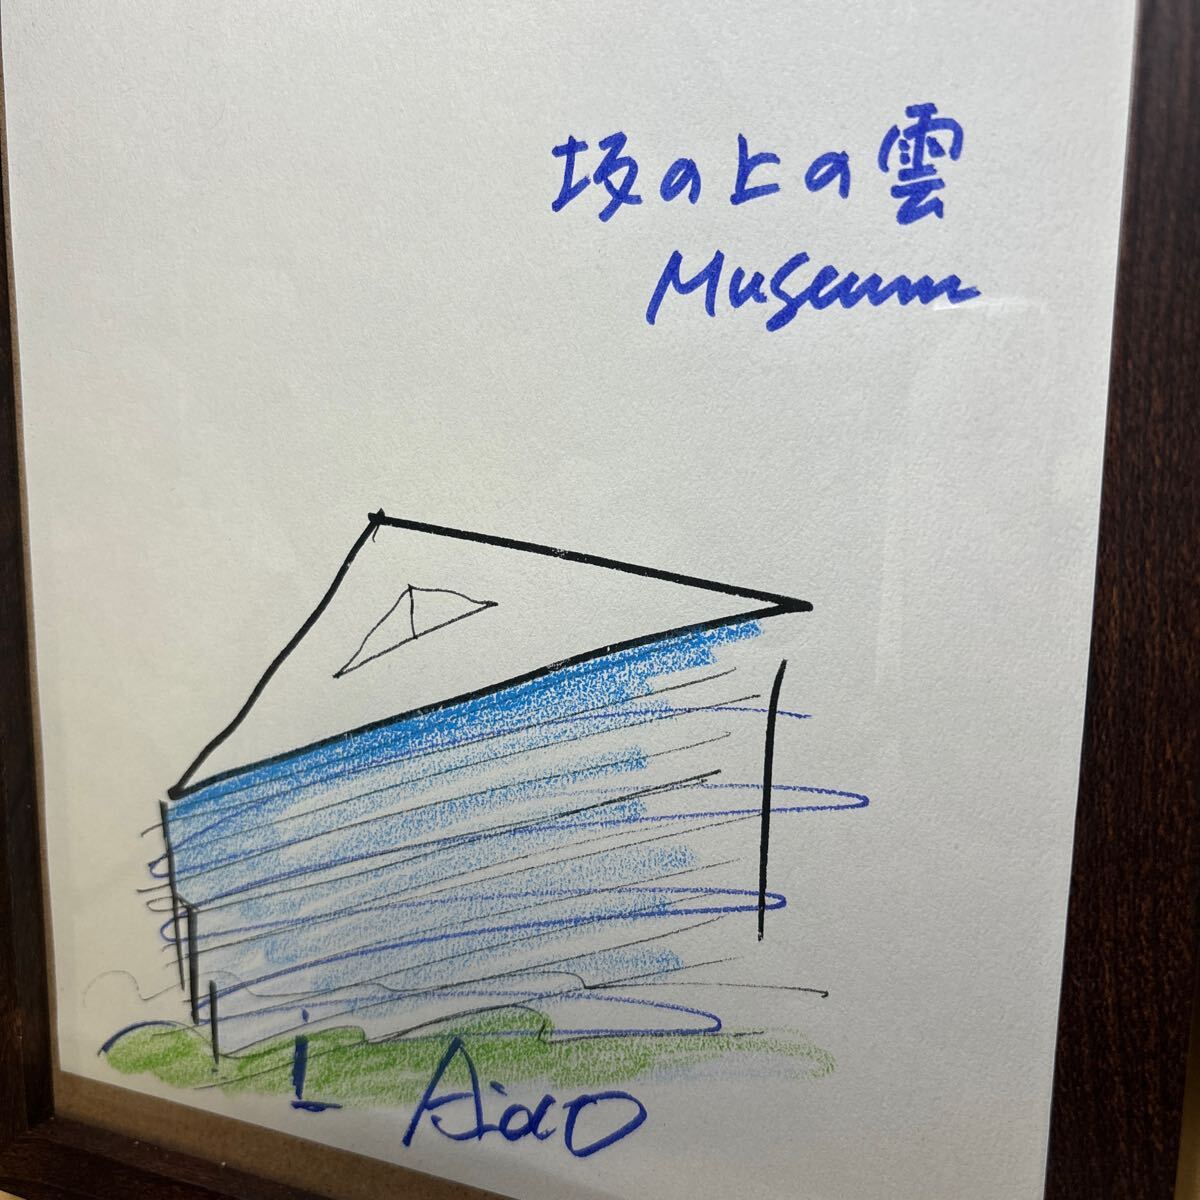 坂の上の雲
Museum